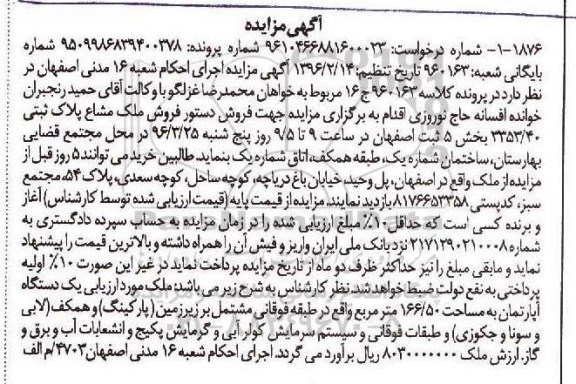 آگهی مزایده
۱-۱۸۷۶- شماره درخواست: ۹۶۱۰۴۶۶۸۸۱۶۰۰۰۲۳ شماره پرونده: ۹۵۰۹۹۸۶۸۳۹۴۰۰۳۷۸ شماره
بایگانی شعبه: ۹۶۰۱۶۳ تاریخ تنظیم: ۱۳۹۶/۲/۱۴ آگهی مزایده اجرای احکام شعبه ۱۶ مدنی اصفهان در
نظر دارد در پرونده کلاسه ۹۶۰۱۶۳ ج ۱۶ مربوط به خواهان محمدرضا غزلگو با وکالت آقای حمید رنجبران
خوانده افسانه حاج نوروزی اقدام به برگزاری مزایده جهت فروش دستور فروش ملک مشاع پلاک ثبتی
۳۳۵۳/۴۰ بخش ۵ ثبت اصفهان در ساعت ۹ تا ۹/۵ روز پنج شنبه ۹۶/۳/۲۵ در محل مجتمع قضایی
بهارستان، ساختمان شماره یک، طبقه همکف، اتاق شماره یک بنماید. طالبین خرید می توانند ۵ روز قبل از
مزایده از ملک واقع در اصفهان، پل وحید، خیابان باغ دریاچه، کوچه ساحل، کوچه سعدی، پلاک ۵۴، مجتمع
سبز، کدپستی ۸۱۷۶۶۵۳۳۵۸ بازدید نمایند. مزایده از قیمت پایه (قیمت ارزیابی شده توسط کارشناس) آغاز
و برنده کسی است که حداقل ۱۰٪ مبلغ ارزیابی شده را در زمان مزایده به حساب سپرده دادگستری به
شماره ۲۱۷۱۲۹۰۲۱۰۰۰۸ نزد بانک ملی ایران واریز و فیش آن را همراه داشته و بالاترین قیمت را پیشنهاد
نماید و مابقی مبلغ را نیز حداکثر ظرف دو ماه از تاریخ مزایده پرداخت نماید در غیر این صورت ۱۰٪ اولیه
پرداختی به نفع دولت ضبط خواهد شد. نظر کارشناس به شرح زیر می باشد: ملک مورد ارزیابی یک دستگاه
آپارتمان به مساحت ۱۶۶/۵۰ متر مربع واقع در طبقه فوقانی مشتمل بر زیرزمین (پارکینگ) و همکف (لابی
و سونا و جکوزی) و طبقات فوقانی و سیستم سرمایش کولر آبی و گرمایش پکیج و انشعابات آب و برق و
گاز. ارزش ملک ۸۰۳۰۰۰۰۰۰۰ ریال برآورد می گردد. اجرای احکام شعبه ۱۶ مدنی اصفهان ۴۷۰۳/م الف